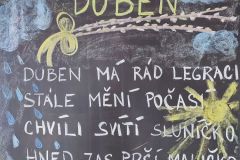 DUBEN
DUBEN MÁ RÁD LEGRACI
STÁLE MĚNÍ POČASÍ
CHVÍLI SVÍTÍ SLUNÍČKO
HNED ZAS PRŠÍ MALIČKO